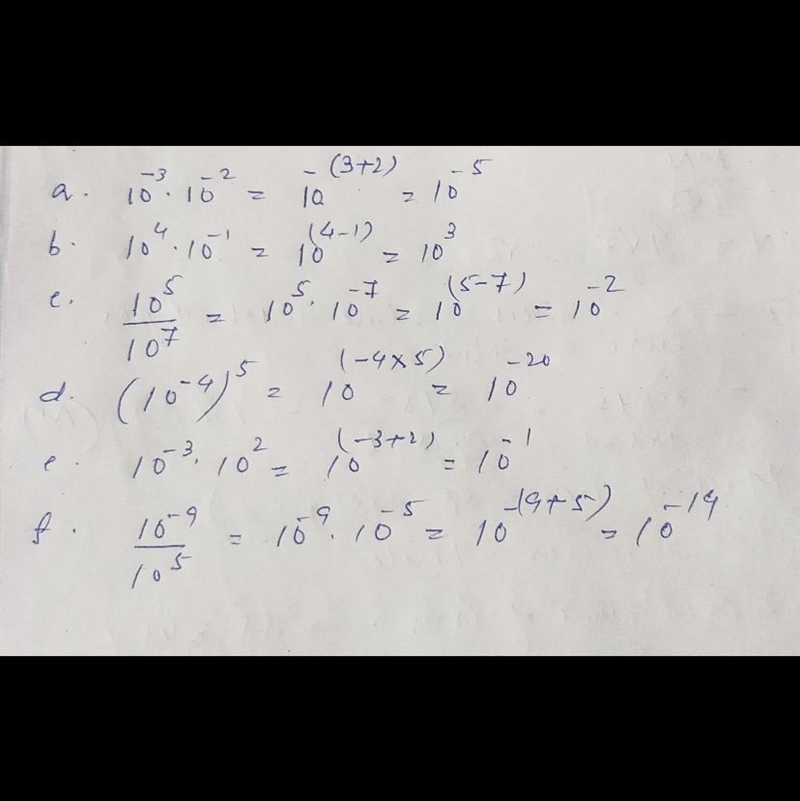 a. 10⁻³ · 10⁻² = 10⁻⁽³⁺²⁾ = 10⁻⁵
b. 10⁴ · 10⁻¹ = 10⁽⁴⁻¹⁾ = 10³
c. 10⁵/10⁷ = 10⁵ · 10⁻⁷ = 10⁽⁵⁻⁷⁾ = 10⁻²
d. (10⁻⁴)⁵ = 10^(-4×5) = 10⁻²⁰
e. 10⁻³ · 10² = 10⁽⁻³⁺²⁾ = 10⁻¹
f. 10⁻⁹/10⁵ = 10⁻⁹ · 10⁻⁵ = 10⁻⁽⁹⁺⁵⁾ = 10⁻¹⁴